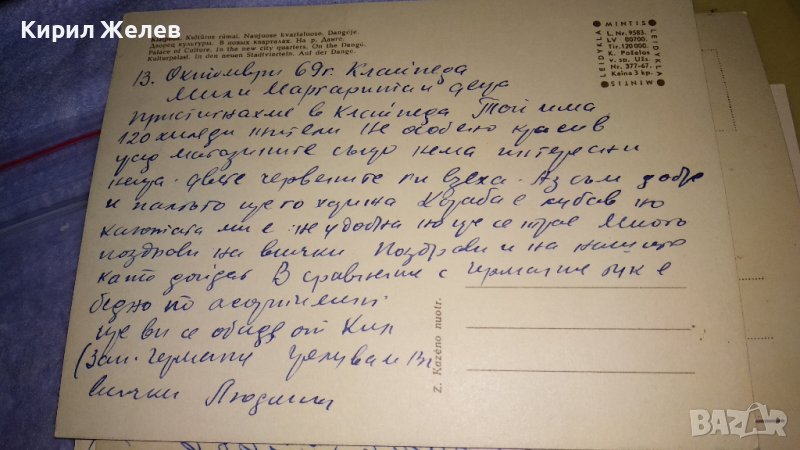 Кирил Желев
Kultūros rūmai. Naujuose kvartaluose. Dangėje.
Дворец культуры. В новых кварталах. На р. Данге.
Palace of Culture. In the new city quarters. On the Dangė.
Kulturpalast. In den neuen Stadtvierteln. Auf der Dangė.
LEIDYKLA MINTIS LEIDYKLA MINTIS
L. Nr. 9583.
LV 00700.
Tir. 120.000
K. Poželos
v. sp. Užs.
Nr. 377-67.
Kaina 3 kp.
13. Октомври 69г. Клайпеда
Мили Маргарита и деца
Пристигнахме в Клайпеда Той има
120 хиляди жители не особено красив
град магазините също няма интересни
неща. Двете червените ги взеха. Аз съм добре
и палтото ще го хариша Кораба е хубав но
каютата ми е неудобна но ще се трае Много
поздрави на всички Поздрави и на
като дойдат В сравнение с Германия тук е
бедно по асортимент
ще ви се обадя от Кил
(Зап. Германия Целувам Ви
всички Людмил
Z. Kazėno nuotr.
BAZAR